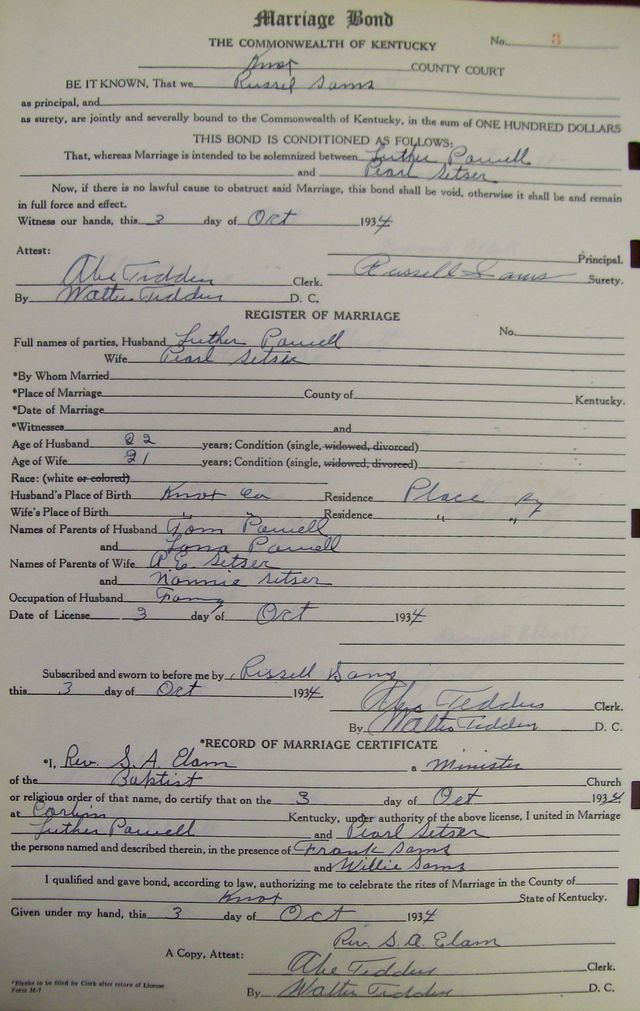 Marriage Bond
THE COMMONWEALTH OF KENTUCKY No. 3
Knox COUNTY COURT
BE IT KNOWN, That we Russel Sams
as principal, and
as surety, are jointly and severally bound to the Commonwealth of Kentucky, in the sum of ONE HUNDRED DOLLARS
THIS BOND IS CONDITIONED AS FOLLOWS:
That, whereas Marriage is intended to be solemnized between Luther Powell
and Pearl Setser
Now, if there is no lawful cause to obstruct said Marriage, this bond shall be void, otherwise it shall be and remain
in full force and effect.
Witness our hands, this 3 day of Oct 1934
Attest: Principal.
Abe Tedders Clerk. Russell Sams Surety.
By Walter Tedders D. C.
REGISTER OF MARRIAGE
No.
Full names of parties, Husband Luther Powell
Wife Pearl Setser
*By Whom Married
*Place of Marriage County of Kentucky.
*Date of Marriage
*Witnesses and
Age of Husband 22 years; Condition (single, widowed, divorced)
Age of Wife 21 years; Condition (single, widowed, divorced)
Race: (white or colored)
Husband's Place of Birth Knox Co Residence Place Ky
Wife's Place of Birth " " Residence " "
Names of Parents of Husband Tom Powell
and Powell
Names of Parents of Wife Setser
and Nannie Setser
Occupation of Husband
Date of License 3 day of Oct 1934
Subscribed and sworn to before me by Russell Sams
this 3 day of Oct 1934 Abe Tedders Clerk.
By Walter Tedders D. C.
*RECORD OF MARRIAGE CERTIFICATE
*I, Rev. S. A. Elam a Minister
of the Baptist Church
or religious order of that name, do certify that on the 3 day of Oct 1934
at Corbin Kentucky, under authority of the above license, I united in Marriage
Luther Powell and Pearl Setser
the persons named and described therein, in the presence of Frank Sams
and Willie Sams
I qualified and gave bond, according to law, authorizing me to celebrate the rites of Marriage in the County of
Knox State of Kentucky.
Given under my hand, this 3 day of Oct 1934
Rev. S. A. Elam
A Copy, Attest: Abe Tedders Clerk.
By Walter Tedders D. C.
*Blanks to be filled by Clerk after return of License
Form M-7